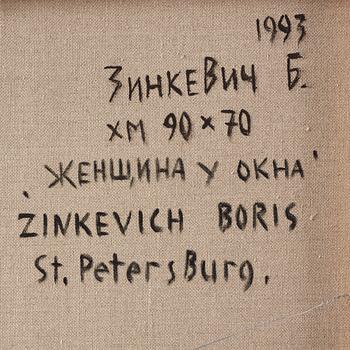 1993
ЗИНКЕВИЧ Б.
ХМ 90 × 70
'ЖЕНЩИНА У ОКНА'
ZINKEVICH BORIS
St. PetersBurg.